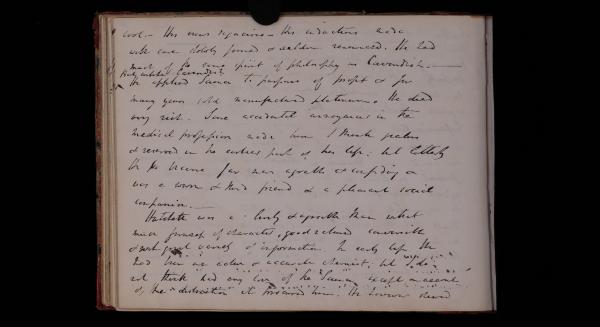 cool — His views sagacious — His inductions made
with care slowly formed & seldom renounced. He had
much of the same spirit of philosophy as Cavendish. —
But unlike Cavendish
he applied Science to purposes of profit & for
many years sold manufactured platinum. He died
very rich. Some accidental annoyances in the
medical profession made him I think jealous
& reserved in the earlier part of his life; but latterly
he became far more agreeable & confiding &
was a warm & kind friend & a pleasant social
companion. —
Hatchett was a lively & agreeable man without
much firmness of character, good natured conversible
& with great variety of information. In early life he
had been an active & accurate chemist, but I do
not think had any love of the Science except on account
of the "distinction" it procured him. He